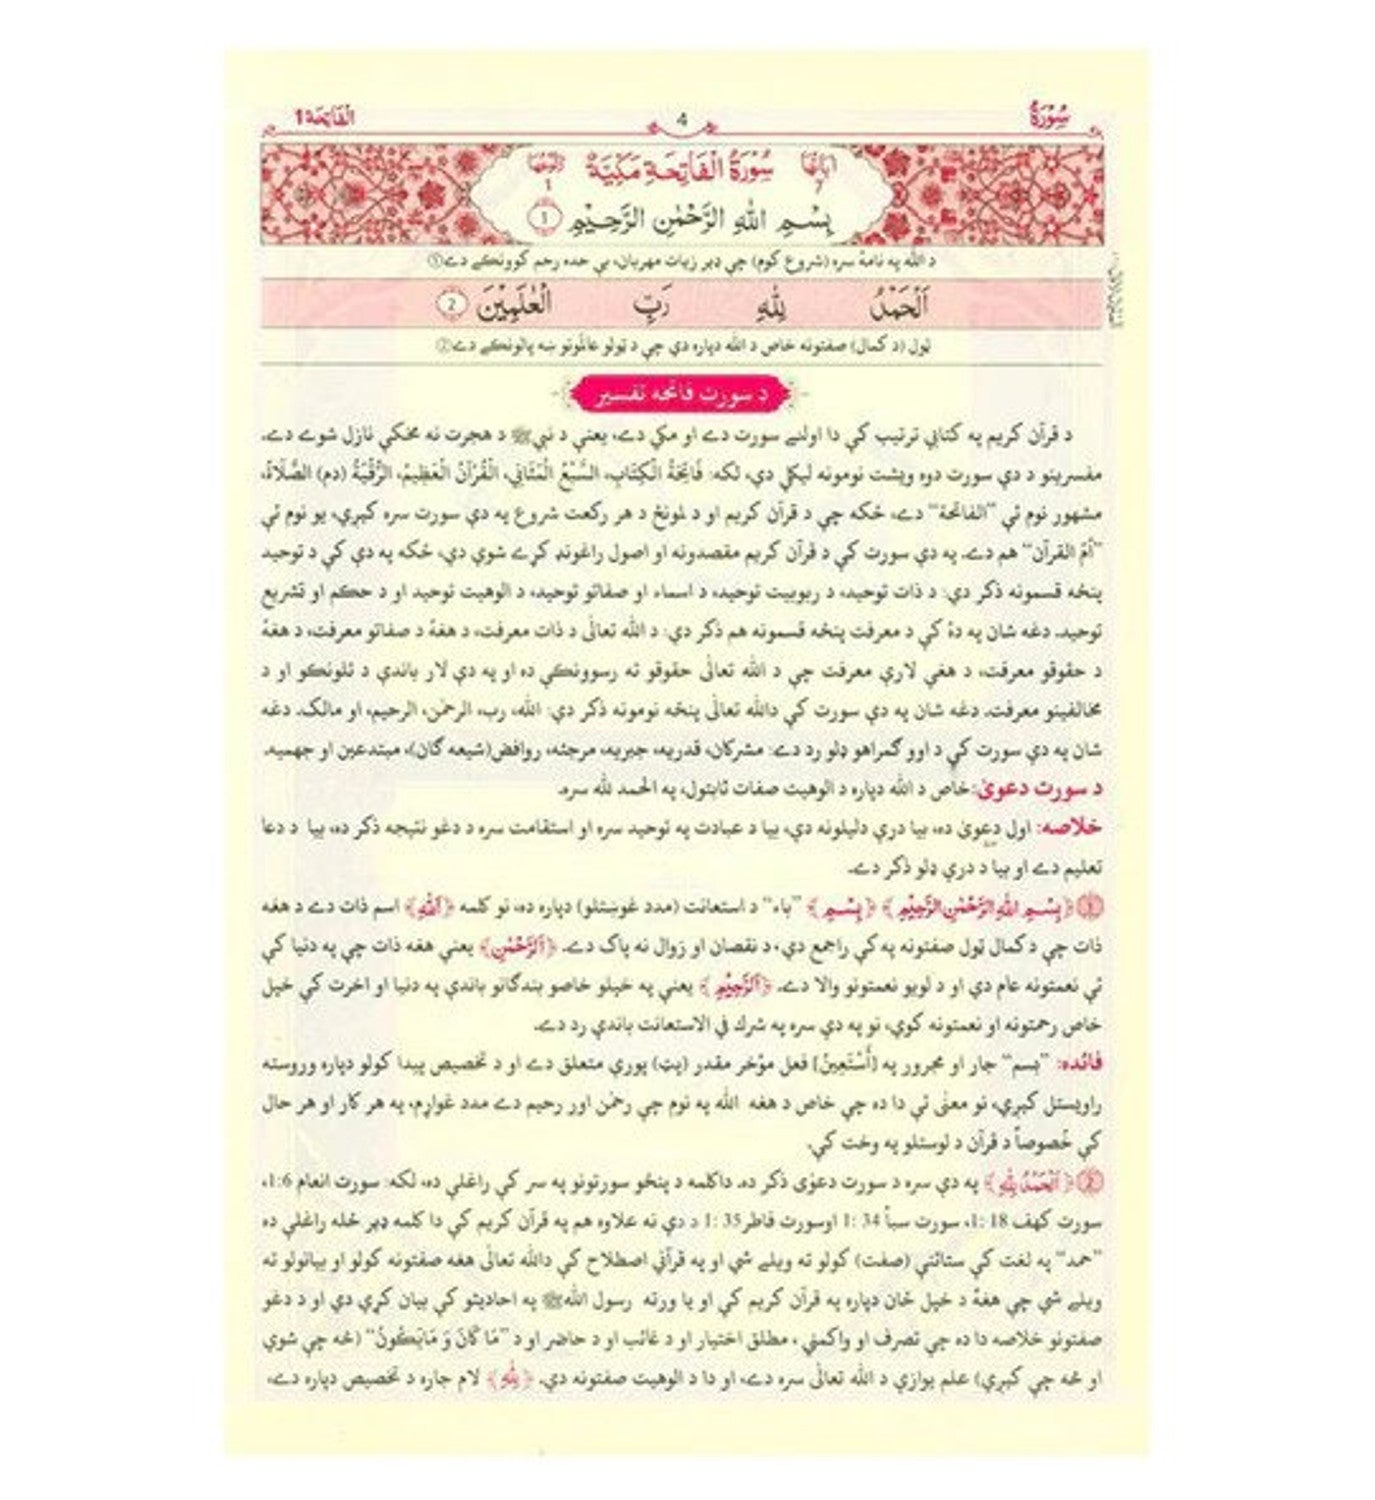 سُوْرَةُ
4
اَلْفَاتِحَة 1
اٰيَاتُهَا 7 سُوْرَةُ الْفَاتِحَةِ مَكِّيَّةٌ رُكُوْعُهَا 1
بِسْمِ اللهِ الرَّحْمٰنِ الرَّحِيْمِ 1
د الله په نامهٔ سره (شروع کوم) چې ډېر زيات مهربان، بې حده رحم کوونکے دے①
اَلْحَمْدُ لِلّٰهِ رَبِّ الْعٰلَمِيْنَ 2
ټول (د کمال) صفتونه خاص د الله دپاره دي چې د ټولو عالمونو ښه پالونکے دے②
د سورت فاتحه تفسير
د قرآن کريم په کتابي ترتيب کې دا اولنے سورت دے او مکي دے، يعنې د نبيﷺ د هجرت نه مخکې نازل شوے دے.
مفسرينو د دې سورت دوه ويشت نومونه ليکلي دي، لکه: فَاتِحَةُ الْكِتَابِ، السَّبْعُ الْمَثَانِي، الْقُرْآنُ الْعَظِيمُ، الرُّقْيَةُ (دم) الصَّلَاةُ،
مشهور نوم ئې "الفاتحة" دے، ځکه چې د قرآن کريم او د لمونځ د هر رکعت شروع په دې سورت سره کېږي، يو نوم ئې
"اُمّ القرآن" هم دے. په دې سورت کې د قرآن کريم مقصدونه او اصول راغونډ کړے شوي دي، ځکه په دې کې د توحيد
پنځه قسمونه ذکر دي: د ذات توحيد، د ربوبيت توحيد، د اسماء او صفاتو توحيد، د الوهيت توحيد او د حکم او تشريع
توحيد. دغه شان په دۀ کې د معرفت پنځه قسمونه هم ذکر دي: د الله تعالٰی د ذات معرفت، د هغۀ د صفاتو معرفت، د هغۀ
د حقوقو معرفت، د هغې لارې معرفت چې د الله تعالٰی حقوقو ته رسوونکې ده او په دې لار باندې د تلونکو او د
مخالفينو معرفت. دغه شان په دې سورت کې دالله تعالٰی پنځه نومونه ذکر دي: الله، رب، الرحمٰن، الرحيم، او مالک. دغه
شان په دې سورت کې د اوو ګمراهو ډلو رد دے: مشرکان، قدريه، جبريه، مرجئه، روافض(شيعه ګان)، مبتدعين او جهميه.
د سورت دعوىٰ: خاص د الله دپاره د الوهيت صفات ثابتول، په الحمد لله سره.
خلاصه: اول دعوىٰ ده، بيا درې دليلونه دي، بيا د عبادت په توحيد سره او استقامت سره د دغو نتيجه ذکر ده، بيا د دعا
تعليم دے او بيا د درې ډلو ذکر دے.
① ﴿بِسْمِ اللهِ الرَّحْمٰنِ الرَّحِيْمِ﴾ ﴿بِسْمِ﴾ "باء" د استعانت (مدد غوښتلو) دپاره ده، نو کلمه ﴿اَللهِ﴾ اسم ذات دے د هغه
ذات چې د کمال ټول صفتونه په کې راجمع دي، د نقصان او زوال نه پاک دے. ﴿اَلرَّحْمٰنِ﴾ يعنې هغه ذات چې په دنيا کې
ئې نعمتونه عام دي او د لويو نعمتونو والا دے. ﴿اَلرَّحِيْمِ﴾ يعنې په خپلو خاصو بندګانو باندې په دنيا او اخرت کې خپل
خاص رحمتونه او نعمتونه کوي، نو په دې سره په شرک في الاستعانت باندې رد دے.
فائده: "بسم" جار او مجرور په [أَسْتَعِينُ] فعل مؤخر مقدر (پټ) پورې متعلق دے او د تخصيص پيدا کولو دپاره وروسته
راويستل کېږي، نو معنٰی ئې دا ده چې خاص د هغه الله په نوم چې رحمٰن اور رحيم دے مدد غواړم، په هر کار او هر حال
کې خُصوصاً د قرآن د لوستلو په وخت کې.
② ﴿اَلْحَمْدُ لِلّٰهِ﴾ په دې سره د سورت دعوٰی ذکر ده. داکلمه د پنځو سورتونو په سر کې راغلې ده، لکه: سورت انعام 1:6،
سورت کهف 18 :1، سورت سبأ 34 :1 اوسورت فاطر35 :1 د دې نه علاوه هم په قرآن کريم کې دا کلمه ډېر ځله راغلې ده
"حمد" په لغت کې ستائنې (صفت) کولو ته ويلے شي او په قرآني اصطلاح کې دالله تعالٰی هغه صفتونه کولو او بيانولو ته
ويلے شي چې هغۀ د خپل ځان دپاره په قرآن کريم کې او يا ورته رسول اللهﷺ په احاديثو کې بيان کړي دي او د دغو
صفتونو خلاصه دا ده چې تصرف او واکمني، مطلق اختيار او د غائب او د حاضر او د "مَا كَانَ وَ مَايَكُونُ" (څه چې شوي
او څه چې کېږي) علم يوازې د الله تعالٰی سره دے، او دا د الوهيت صفتونه دي. ﴿لِلّٰهِ﴾ لام جاره د تخصيص دپاره دے،